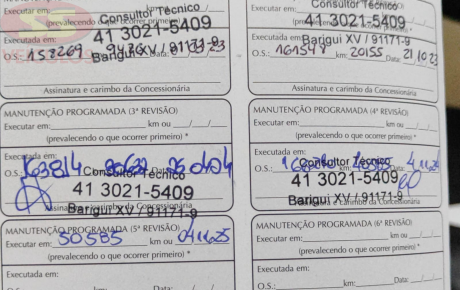 Executar em:
(prevalecendo o que ocorrer primeiro) *
Consultor Técnico
41 3021-5409
Barigui XV / 91171-9
Executada em:
O.S.: 158269
Data: 23
Assinatura e carimbo da Concessionária
Executar em:
Consultor Técnico
41 3021-5409
Barigui XV / 91171-9
Executada em:
O.S.: 161547 km: 20155 Data: 21.10.23
Assinatura e carimbo da Concessionária
MANUTENÇÃO PROGRAMADA (3ª REVISÃO)
Executar em: km ou / /
(prevalecendo o que ocorrer primeiro) *
Executada em:
O.S.: 163814
Consultor Técnico
41 3021-5409
Barigui XV / 91171-9
MANUTENÇÃO PROGRAMADA (4ª REVISÃO)
Executar em: km ou / /
(prevalecendo o que ocorrer primeiro) *
Executada em:
O.S.:
Consultor Técnico
41 3021-5409
Barigui XV / 91171-9
Assinatura e carimbo da Concessionária
MANUTENÇÃO PROGRAMADA (5ª REVISÃO)
Executar em: 50585 km ou 04/11/25
(prevalecendo o que ocorrer primeiro) *
Executada em:
O.S.: km: Data: / /
MANUTENÇÃO PROGRAMADA (6ª REVISÃO)
Executar em: km ou / /
(prevalecendo o que ocorrer primeiro) *
Executada em:
O.S.: km: Data: / /